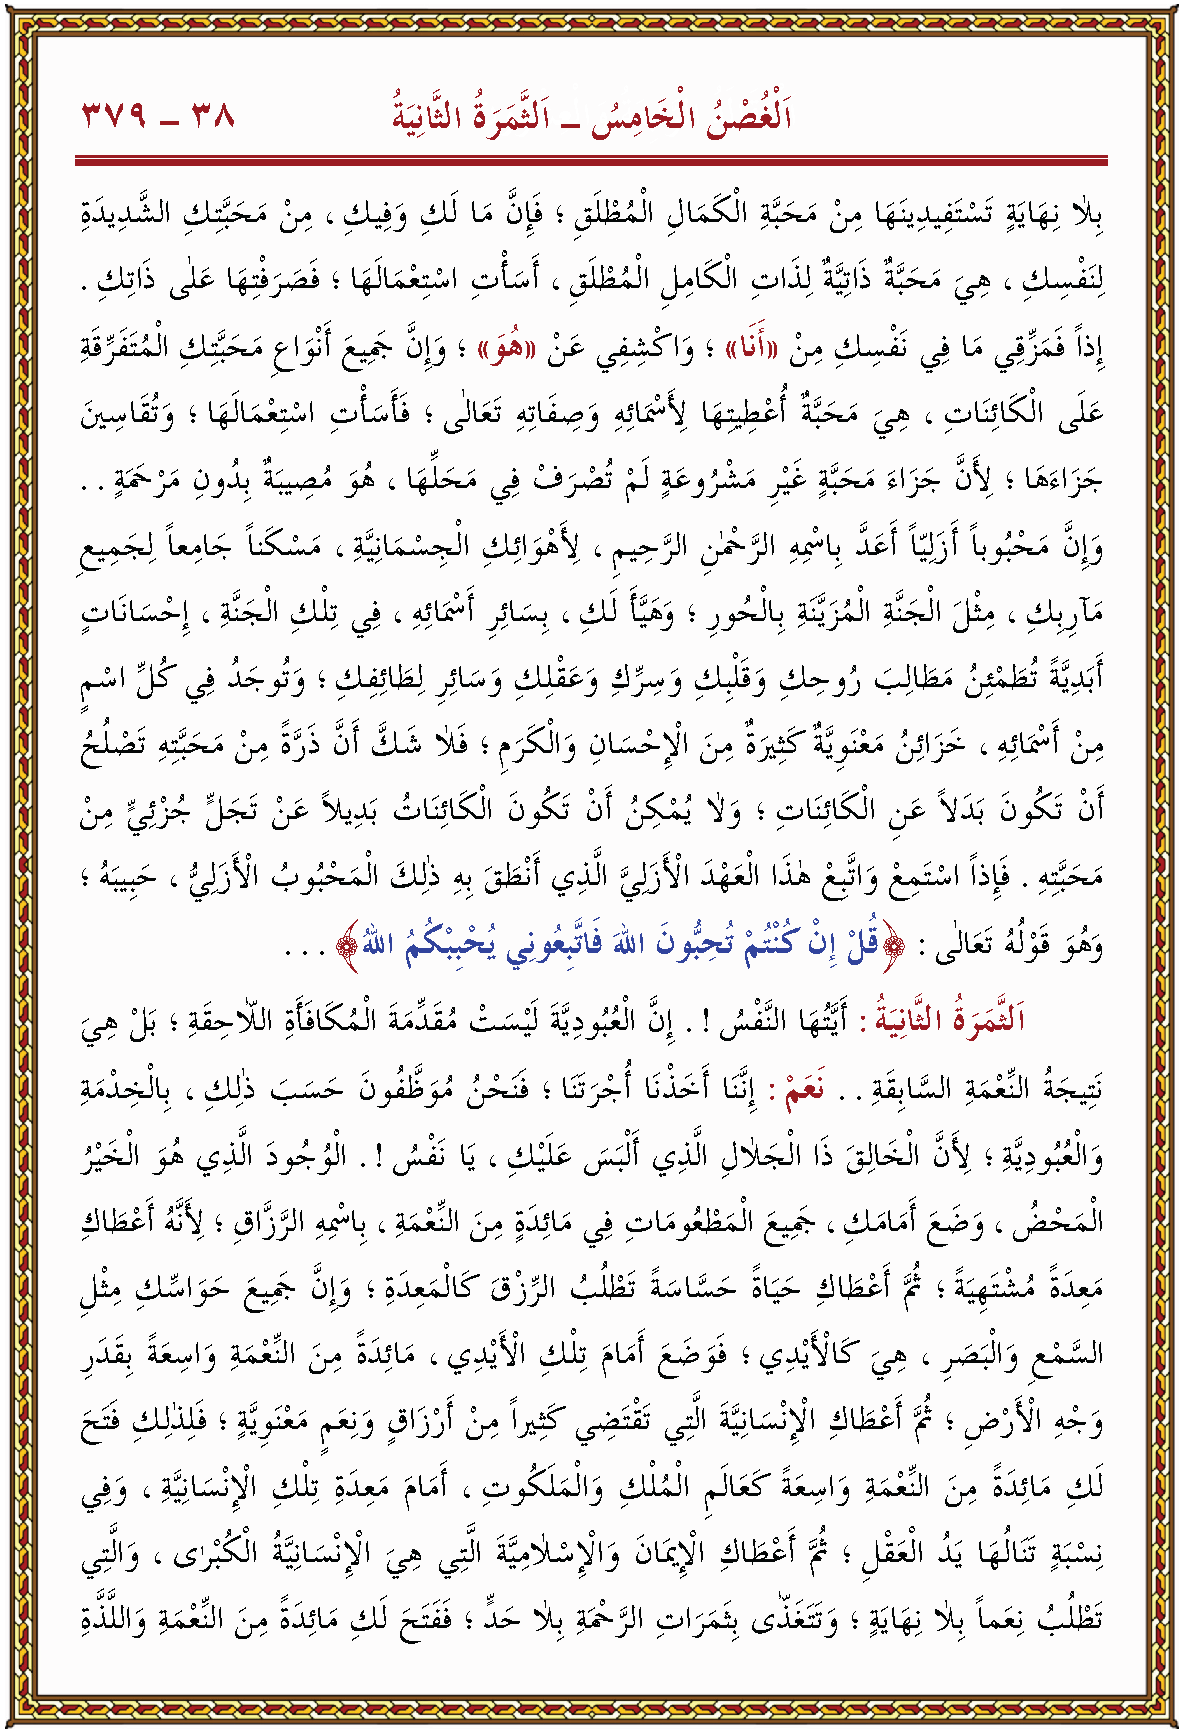 اَلْغُصْنُ الْخَامِسُ ــ اَلثَّمَرَةُ الثَّانِيَةُ ٣٨ ــ ٣٧٩
بِلاٰ نِهَايَةٍ تَسْتَفِيدِينَهَا مِنْ مَحَبَّةِ الْكَمَالِ الْمُطْلَقِ ؛ فَإِنَّ مَا لَكِ وَفِيكِ ، مِنْ مَحَبَّتِكِ الشَّدِيدَةِ
لِنَفْسِكِ ، هِيَ مَحَبَّةٌ ذَاتِيَّةٌ لِذَاتِ الْكَامِلِ الْمُطْلَقِ ، أَسَأْتِ اسْتِعْمَالَهَا ؛ فَصَرَفْتِهَا عَلٰى ذَاتِكِ .
إِذاً فَمَزِّقِي مَا فِي نَفْسِكِ مِنْ «أَنَا» ؛ وَاكْشِفِي عَنْ «هُوَ» ؛ وَإِنَّ جَمِيعَ أَنْوَاعِ مَحَبَّتِكِ الْمُتَفَرِّقَةِ
عَلَى الْكَائِنَاتِ ، هِيَ مَحَبَّةٌ أُعْطِيتِهَا لِأَسْمَائِهِ وَصِفَاتِهِ تَعَالٰى ؛ فَأَسَأْتِ اسْتِعْمَالَهَا ؛ وَتُقَاسِينَ
جَزَاءَهَا ؛ لِأَنَّ جَزَاءَ مَحَبَّةٍ غَيْرِ مَشْرُوعَةٍ لَمْ تُصْرَفْ فِي مَحَلِّهَا ، هُوَ مُصِيبَةٌ بِدُونِ مَرْحَمَةٍ . .
وَإِنَّ مَحْبُوباً أَزَلِيّاً أَعَدَّ بِاسْمِهِ الرَّحْمٰنِ الرَّحِيمِ ، لِأَهْوَائِكِ الْجِسْمَانِيَّةِ ، مَسْكَناً جَامِعاً لِجَمِيعِ
مَآرِبِكِ ، مِثْلَ الْجَنَّةِ الْمُزَيَّنَةِ بِالْحُورِ ؛ وَهَيَّأَ لَكِ ، بِسَائِرِ أَسْمَائِهِ ، فِي تِلْكِ الْجَنَّةِ ، إِحْسَانَاتٍ
أَبَدِيَّةً تُطَمْئِنُ مَطَالِبَ رُوحِكِ وَقَلْبِكِ وَسِرِّكِ وَعَقْلِكِ وَسَائِرِ لِطَائِفِكِ ؛ وَتُوجَدُ فِي كُلِّ اسْمٍ
مِنْ أَسْمَائِهِ ، خَزَائِنُ مَعْنَوِيَّةٌ كَثِيرَةٌ مِنَ الْإِحْسَانِ وَالْكَرَمِ ؛ فَلاٰ شَكَّ أَنَّ ذَرَّةً مِنْ مَحَبَّتِهِ تَصْلُحُ
أَنْ تَكُونَ بَدَلاً عَنِ الْكَائِنَاتِ ؛ وَلاٰ يُمْكِنُ أَنْ تَكُونَ الْكَائِنَاتُ بَدِيلاً عَنْ تَجَلٍّ جُزْئِيٍّ مِنْ
مَحَبَّتِهِ . فَإِذاً اسْتَمِعْ وَاتَّبِعْ هٰذَا الْعَهْدَ الْأَزَلِيَّ الَّذِي أَنْطَقَ بِهِ ذٰلِكَ الْمَحْبُوبُ الْأَزَلِيُّ ، حَبِيبَهُ ؛
وَهُوَ قَوْلُهُ تَعَالٰى : ﴿قُلْ إِنْ كُنْتُمْ تُحِبُّونَ اللهَ فَاتَّبِعُونِي يُحْبِبْكُمُ اللهُ﴾ . . .
اَلثَّمَرَةُ الثَّانِيَةُ : أَيَّتُهَا النَّفْسُ ! . إِنَّ الْعُبُودِيَّةَ لَيْسَتْ مُقَدِّمَةَ الْمُكَافَأَةِ اللاَّحِقَةِ ؛ بَلْ هِيَ
نَتِيجَةُ النِّعْمَةِ السَّابِقَةِ . . نَعَمْ : إِنَّنَا أَخَذْنَا أُجْرَتَنَا ؛ فَنَحْنُ مُوَظَّفُونَ حَسَبَ ذٰلِكِ ، بِالْخِدْمَةِ
وَالْعُبُودِيَّةِ ؛ لِأَنَّ الْخَالِقَ ذَا الْجَلاٰلِ الَّذِي أَلْبَسَ عَلَيْكِ ، يَا نَفْسُ ! . الْوُجُودَ الَّذِي هُوَ الْخَيْرُ
الْمَحْضُ ، وَضَعَ أَمَامَكِ ، جَمِيعَ الْمَطْعُومَاتِ فِي مَائِدَةٍ مِنَ النِّعْمَةِ ، بِاسْمِهِ الرَّزَّاقِ ؛ لِأَنَّهُ أَعْطَاكِ
مَعِدَةً مُشْتَهِيَةً ؛ ثُمَّ أَعْطَاكِ حَيَاةً حَسَّاسَةً تَطْلُبُ الرِّزْقَ كَالْمَعِدَةِ ؛ وَإِنَّ جَمِيعَ حَوَاسِّكِ مِثْلِ
السَّمْعِ وَالْبَصَرِ ، هِيَ كَالْأَيْدِي ؛ فَوَضَعَ أَمَامَ تِلْكِ الْأَيْدِي ، مَائِدَةً مِنَ النِّعْمَةِ وَاسِعَةً بِقَدَرِ
وَجْهِ الْأَرْضِ ؛ ثُمَّ أَعْطَاكِ الْإِنْسَانِيَّةَ الَّتِي تَقْتَضِي كَثِيراً مِنْ أَرْزَاقٍ وَنِعَمٍ مَعْنَوِيَّةٍ ؛ فَلِذٰلِكِ فَتَحَ
لَكِ مَائِدَةً مِنَ النِّعْمَةِ وَاسِعَةً كَعَالَمِ الْمُلْكِ وَالْمَلَكُوتِ ، أَمَامَ مَعِدَةِ تِلْكِ الْإِنْسَانِيَّةِ ، وَفِي
نِسْبَةٍ تَنَالُهَا يَدُ الْعَقْلِ ؛ ثُمَّ أَعْطَاكِ الْإِيمَانَ وَالْإِسْلاٰمِيَّةَ الَّتِي هِيَ الْإِنْسَانِيَّةُ الْكُبْرٰى ، وَالَّتِي
تَطْلُبُ نِعَماً بِلاٰ نِهَايَةٍ ؛ وَتَتَغَذّٰى بِثَمَرَاتِ الرَّحْمَةِ بِلاٰ حَدٍّ ؛ فَفَتَحَ لَكِ مَائِدَةً مِنَ النِّعْمَةِ وَاللَّذَّةِ